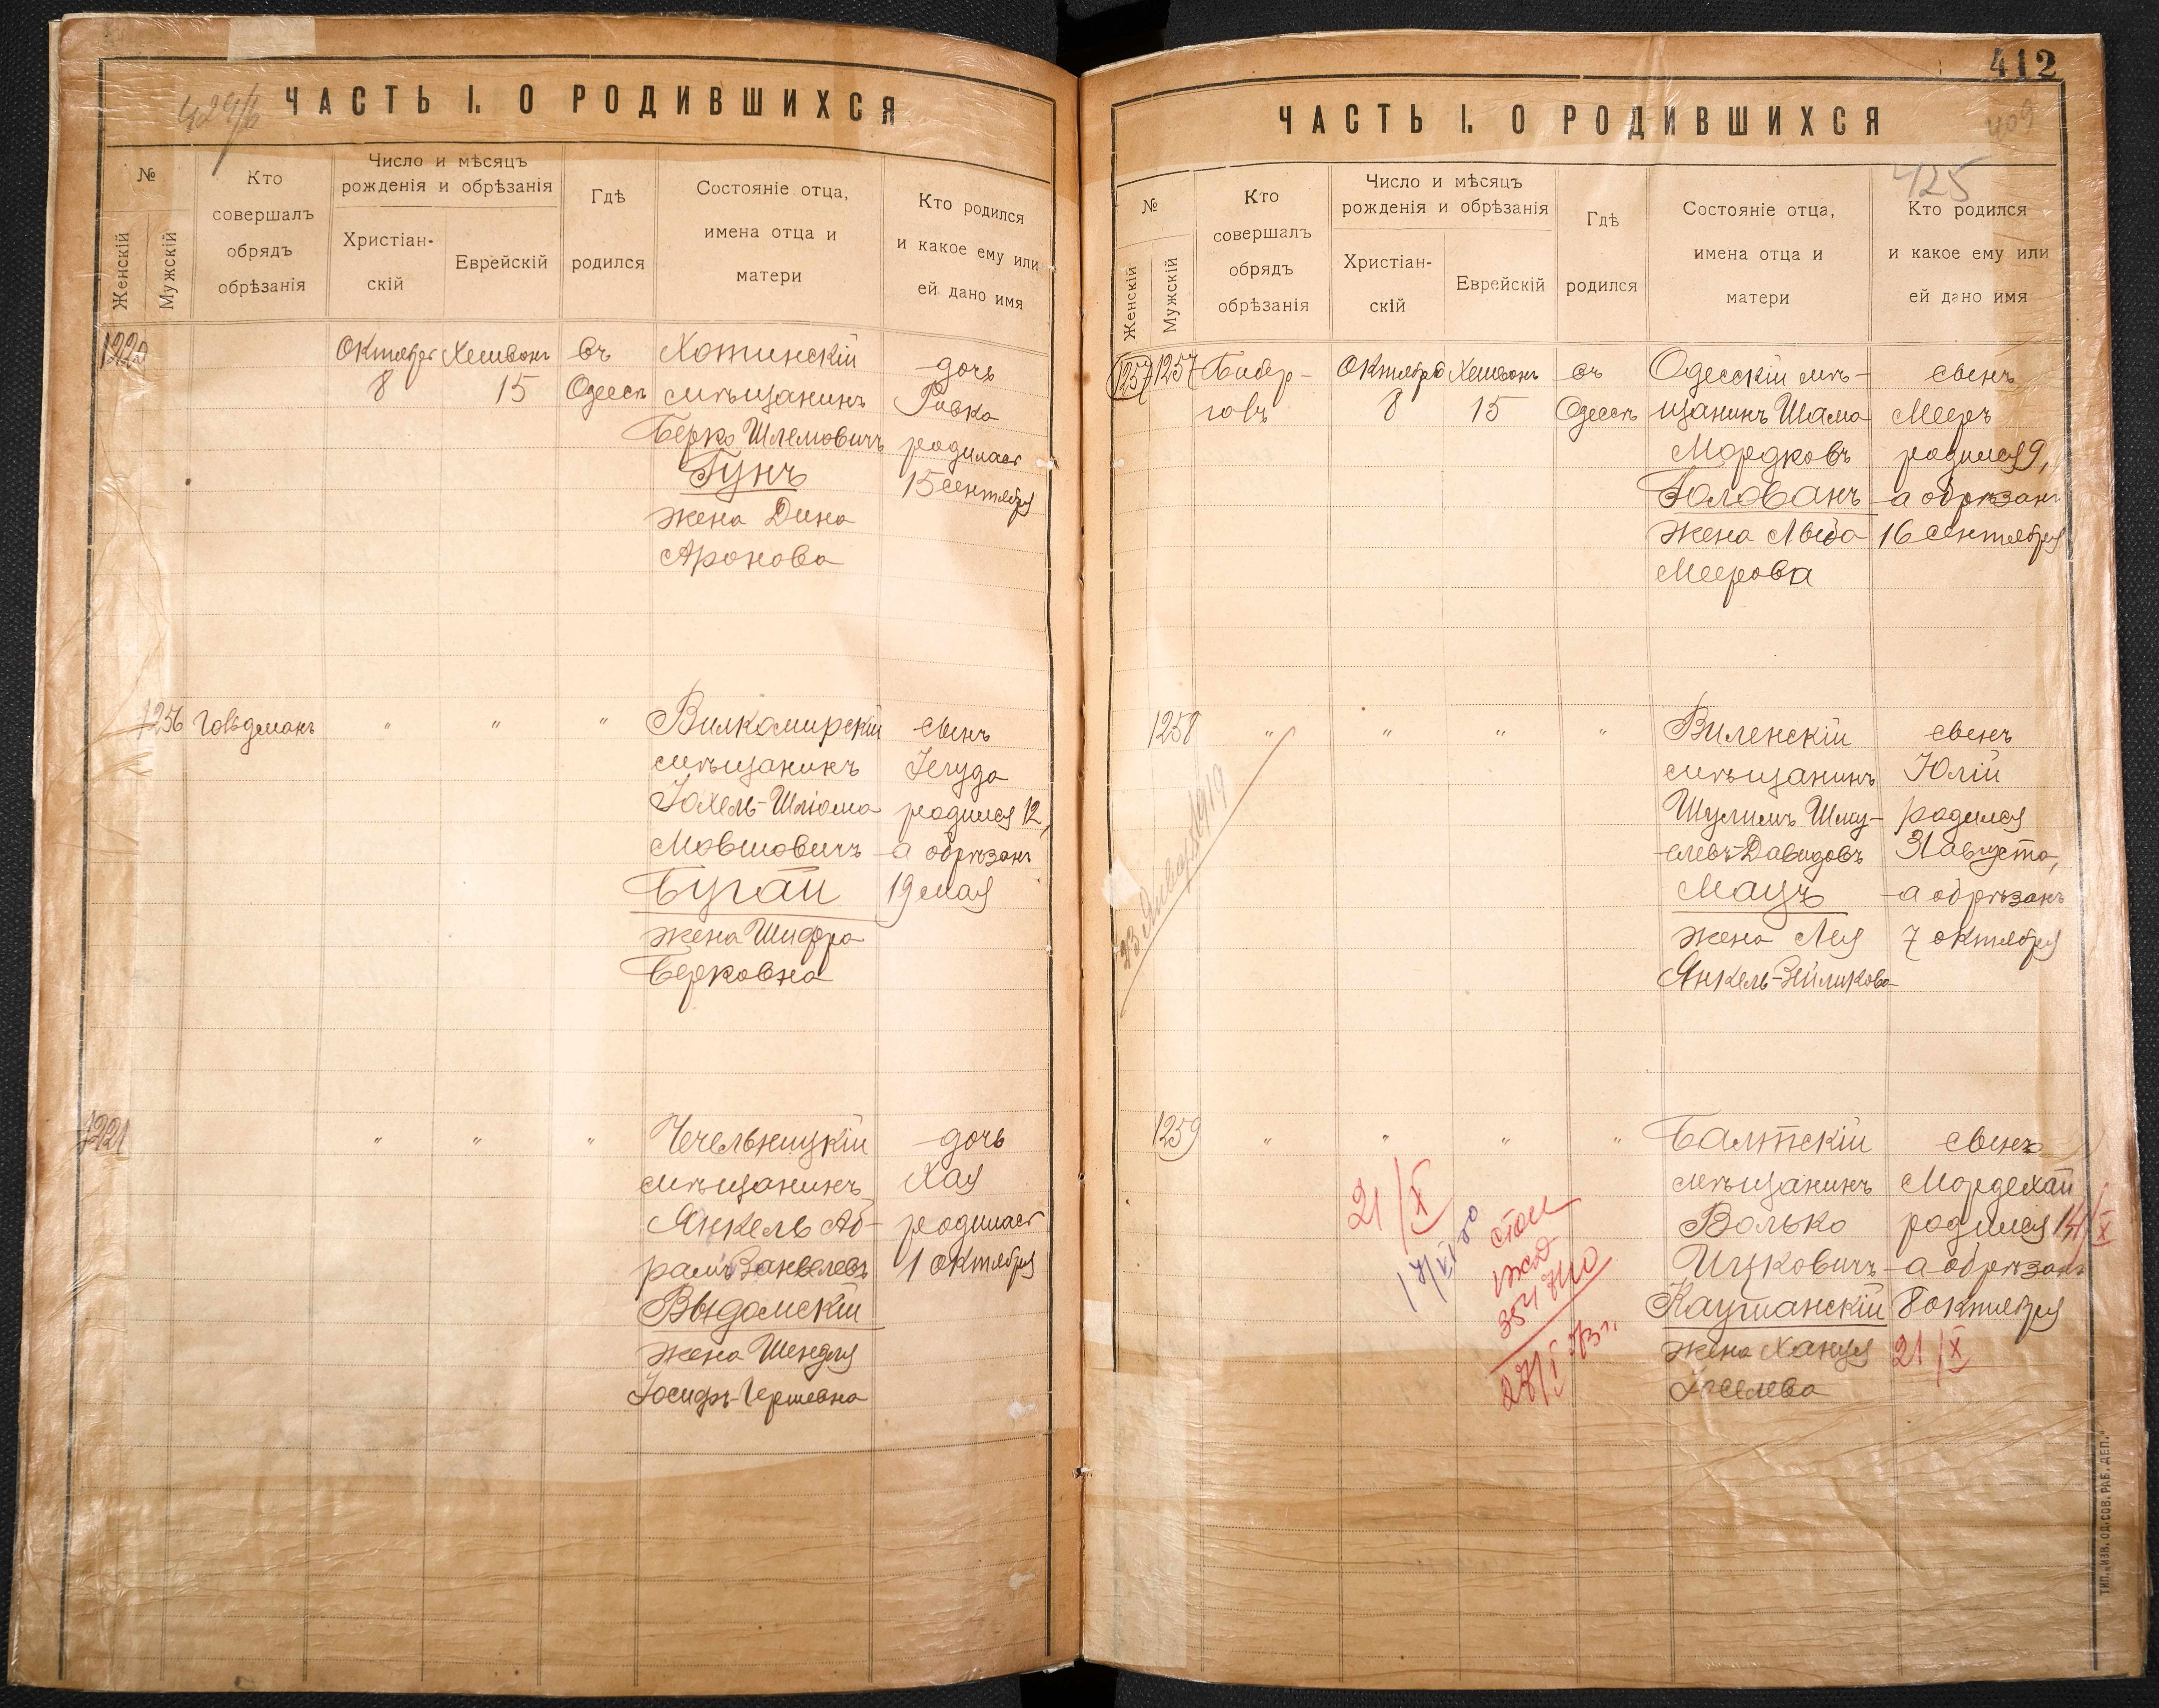 424/б
ЧАСТЬ I. О РОДИВШИХСЯ
№
Женскій
Мужскій
Кто
совершалъ
обрядъ
обрѣзанія
Число и мѣсяцъ
рожденія и обрѣзанія
Христіан-
скій
Еврейскій
Гдѣ
родился
Состояніе отца,
имена отца и
матери
Кто родился
и какое ему или
ей дано имя
1220
Октября
8
Хешванъ
15
въ
Одессѣ
Хотинскій
мѣщанинъ
Берко Шлемовичъ
Гунъ
жена Дина
Аронова
дочь
Ривка
родилась
15 сентября
1256
Говдманъ
" " "
Вилкомирскій
мѣщанинъ
Іохель-Шлiома
Мовшовичъ
Бугай
жена Шифра
Берковна
сынъ
Іегуда
родился 12,
а обрѣзанъ
19 мая
1221
" " "
Чечельницкій
мѣщанинъ
Янкель Аб-
рамъ Занвелевъ
Выдомскій
жена Шендля
Іосифъ-Гершевна
дочь
Хая
родилась
1 октября
412
ЧАСТЬ I. О РОДИВШИХСЯ
409
425
№
Женскій
Мужскій
Кто
совершалъ
обрядъ
обрѣзанія
Число и мѣсяцъ
рожденія и обрѣзанія
Христіан-
скій
Еврейскій
Гдѣ
родился
Состояніе отца,
имена отца и
матери
Кто родился
и какое ему или
ей дано имя
1257
1257
Бибер-
говъ
Октября
8
Хешванъ
15
въ
Одессѣ
Одесскій мѣ-
щанинъ Шама
Мордковъ
Голованъ
жена Лыба
Меерова
сынъ
Мееръ
родился 9,
а обрѣзанъ
16 сентября
1258
" " " "
23 Января 1919
Виленскій
мѣщанинъ
Шулимъ Шму-
левъ-Давидовъ
Мацъ
жена Лея
Янкель-Зейликова
сынъ
Юлій
родился
31 августа,
а обрѣзанъ
7 октября
1259
" " " "
21/X
Балтскій
мѣщанинъ
Волько
Ицковичъ
Каушанскій
жена Ханця
сынъ
Мордехай
родился 14/X
а обрѣзанъ
8 октября
21/X
ТИП. „ИЗВ. ОД. СОВ. РАБ. ДЕП."